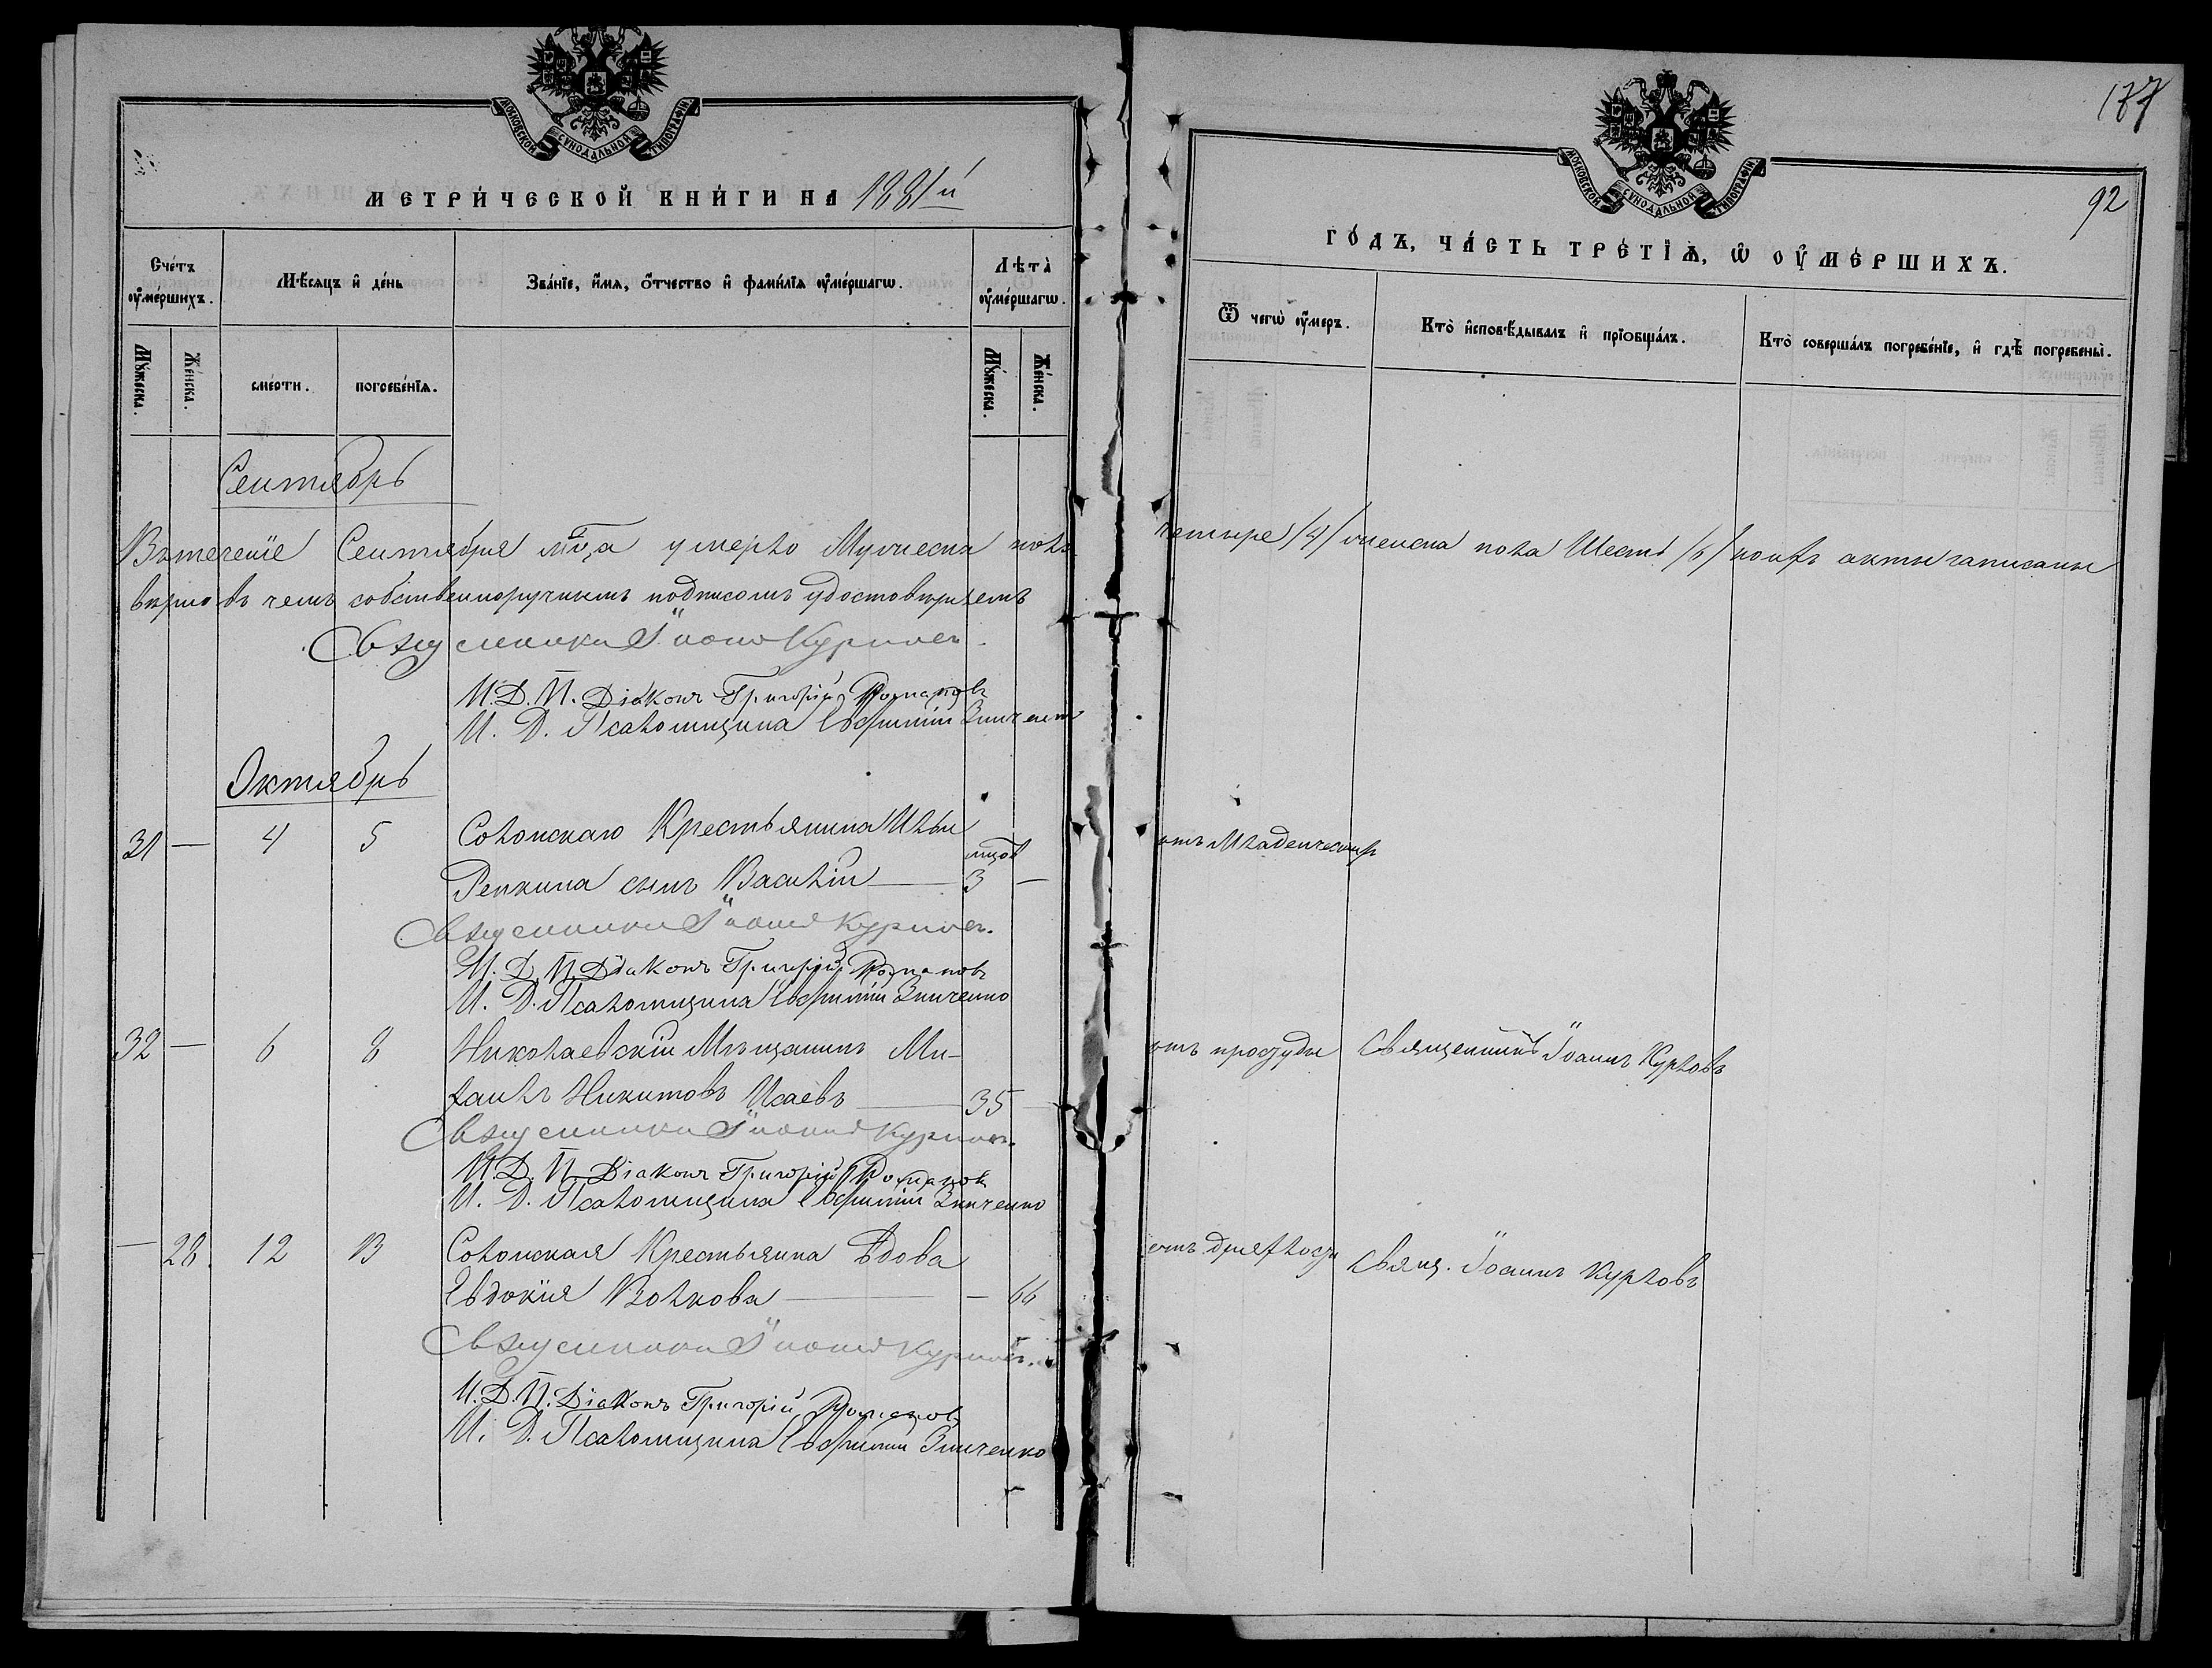 МОСКОВСКОЙ СѴНОДАЛЬНОЙ ТИПОГРАФІИ
МЕТРИ́ЧЕСКОЙ КНИ́ГИ НА 1881й
Сче́тъ ᲂу҆ме́ршихъ.
Мѣ́сяцъ и҆ де́нь
Зва́нїе, и҆́мѧ, ѻ҆́тчество и҆ фами́лїѧ ᲂу҆ме́ршагѡ.
Лѣта̀ ᲂу҆ме́ршагѡ.
Мꙋ́жеска.
Же́нска.
сме́рти.
погребе́нїѧ.
Мꙋ́жеска.
Же́нска.
Сентябрь
Въ теченіе Сентября м̃ца умерло Мужеска пола
вѣрно въ чемъ собственноручнымъ подписомъ удостовѣряемъ
Священникъ Іоаннъ Курловъ.
И. Д. П. Діаконъ Григорій Романовъ
И. Д. Псаломщика Евфимій Зинченко
Октябрь
31 — 4 5 Солонскаго Крестьянина Ильи
мцов
Репкина сынъ Василій — 3 —
Священникъ Іоаннъ Курловъ.
И. Д. П. Діаконъ Григорій Романовъ
И. Д. Псаломщика Евфимій Зинченко
32 — 6 8 Николаевскій Мѣщанинъ Ми-
хаилъ Никитовъ Исаевъ — 35
Священникъ Іоаннъ Курловъ.
И. Д. П. Діаконъ Григорій Романовъ
И. Д. Псаломщика Евфимій Зинченко
— 28 12 13 Солонская Крестьянка Вдова
Евдокія Волкова — — 66
Священникъ Іоаннъ Курловъ.
И. Д. П. Діаконъ Григорій Романовъ
И. Д. Псаломщика Евфимій Зинченко
177
МОСКОВСКОЙ СѴНОДАЛЬНОЙ ТИПОГРАФІИ
92
ГО́ДЪ, ЧА́СТЬ ТРЕ́ТЇѦ, Ѡ҆ ОУ҆МЕ́РШИХЪ.
Ѿ чегѡ̀ ᲂу҆́меръ.
Кто̀ и҆сповѣ́дывалъ и҆ прїобща́лъ.
Кто̀ соверша́лъ погребе́нїе, и҆ гдѣ̀ погребены̀.
четыре /4/ женска пола Шесть /6/ коихъ акты записаны
отъ Младенческ
отъ простуды Священникъ Іоаннъ Курловъ
отъ дряхлост Свящ. Іоаннъ Курловъ